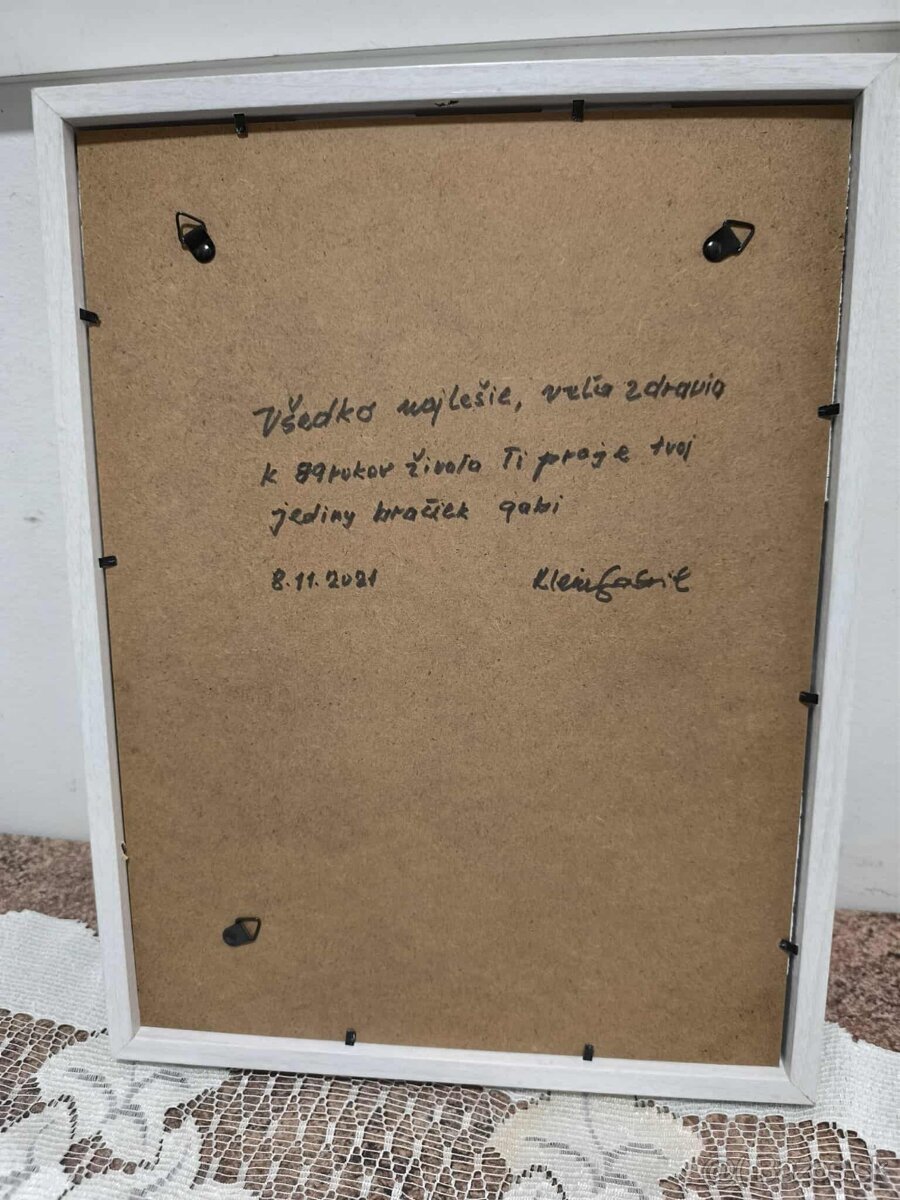 Všedko najlešie, vella zdravia
k 89 rokov života Ti praje tvoj
jediny braček gabi
8.11.2021 Klein Gabriel